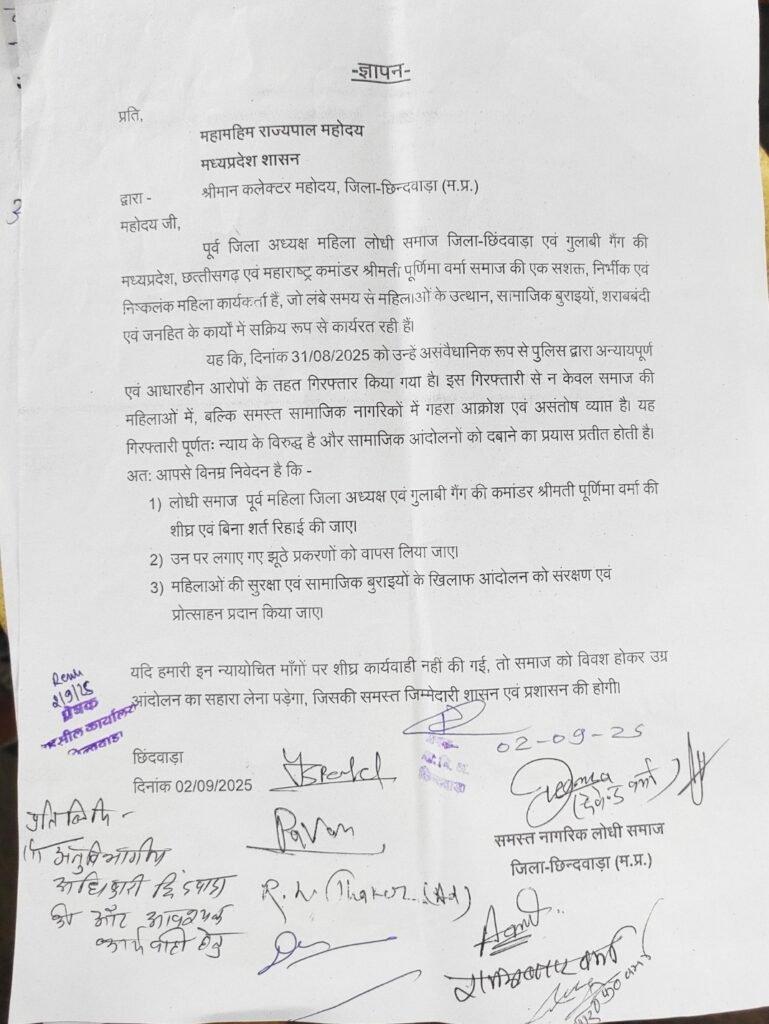 -ज्ञापन-
प्रति,
महामहिम राज्यपाल महोदय
मध्यप्रदेश शासन
द्वारा - श्रीमान कलेक्टर महोदय, जिला-छिन्दवाड़ा (म.प्र.)
महोदय जी,
पूर्व जिला अध्यक्ष महिला लोधी समाज जिला-छिंदवाड़ा एवं गुलाबी गैंग की
मध्यप्रदेश, छत्तीसगढ़ एवं महाराष्ट्र कमांडर श्रीमती पूर्णिमा वर्मा समाज की एक सशक्त, निर्भीक एवं
निष्कलंक महिला कार्यकर्ता हैं, जो लंबे समय से महिलाओं के उत्थान, सामाजिक बुराइयों, शराबबंदी
एवं जनहित के कार्यों में सक्रिय रूप से कार्यरत रही हैं।
यह कि, दिनांक 31/08/2025 को उन्हें असंवैधानिक रूप से पुलिस द्वारा अन्यायपूर्ण
एवं आधारहीन आरोपों के तहत गिरफ्तार किया गया है। इस गिरफ्तारी से न केवल समाज की
महिलाओं में, बल्कि समस्त सामाजिक नागरिकों में गहरा आक्रोश एवं असंतोष व्याप्त है। यह
गिरफ्तारी पूर्णतः न्याय के विरुद्ध है और सामाजिक आंदोलनों को दबाने का प्रयास प्रतीत होती है।
अत: आपसे विनम्र निवेदन है कि -
1) लोधी समाज पूर्व महिला जिला अध्यक्ष एवं गुलाबी गैंग की कमांडर श्रीमती पूर्णिमा वर्मा की
शीघ्र एवं बिना शर्त रिहाई की जाए।
2) उन पर लगाए गए झूठे प्रकरणों को वापस लिया जाए।
3) महिलाओं की सुरक्षा एवं सामाजिक बुराइयों के खिलाफ आंदोलन को संरक्षण एवं
प्रोत्साहन प्रदान किया जाए।
यदि हमारी इन न्यायोचित माँगों पर शीघ्र कार्यवाही नहीं की गई, तो समाज को विवश होकर उग्र
आंदोलन का सहारा लेना पड़ेगा, जिसकी समस्त जिम्मेदारी शासन एवं प्रशासन की होगी।
2/9/25
02-09-25
छिंदवाड़ा
दिनांक 02/09/2025
Pavan
समस्त नागरिक लोधी समाज
जिला-छिन्दवाड़ा (म.प्र.)
प्रतिलिपि -
अनुविभागीय
अधिकारी छिंदवाड़ा
की ओर आवश्यक
कार्यवाही हेतु